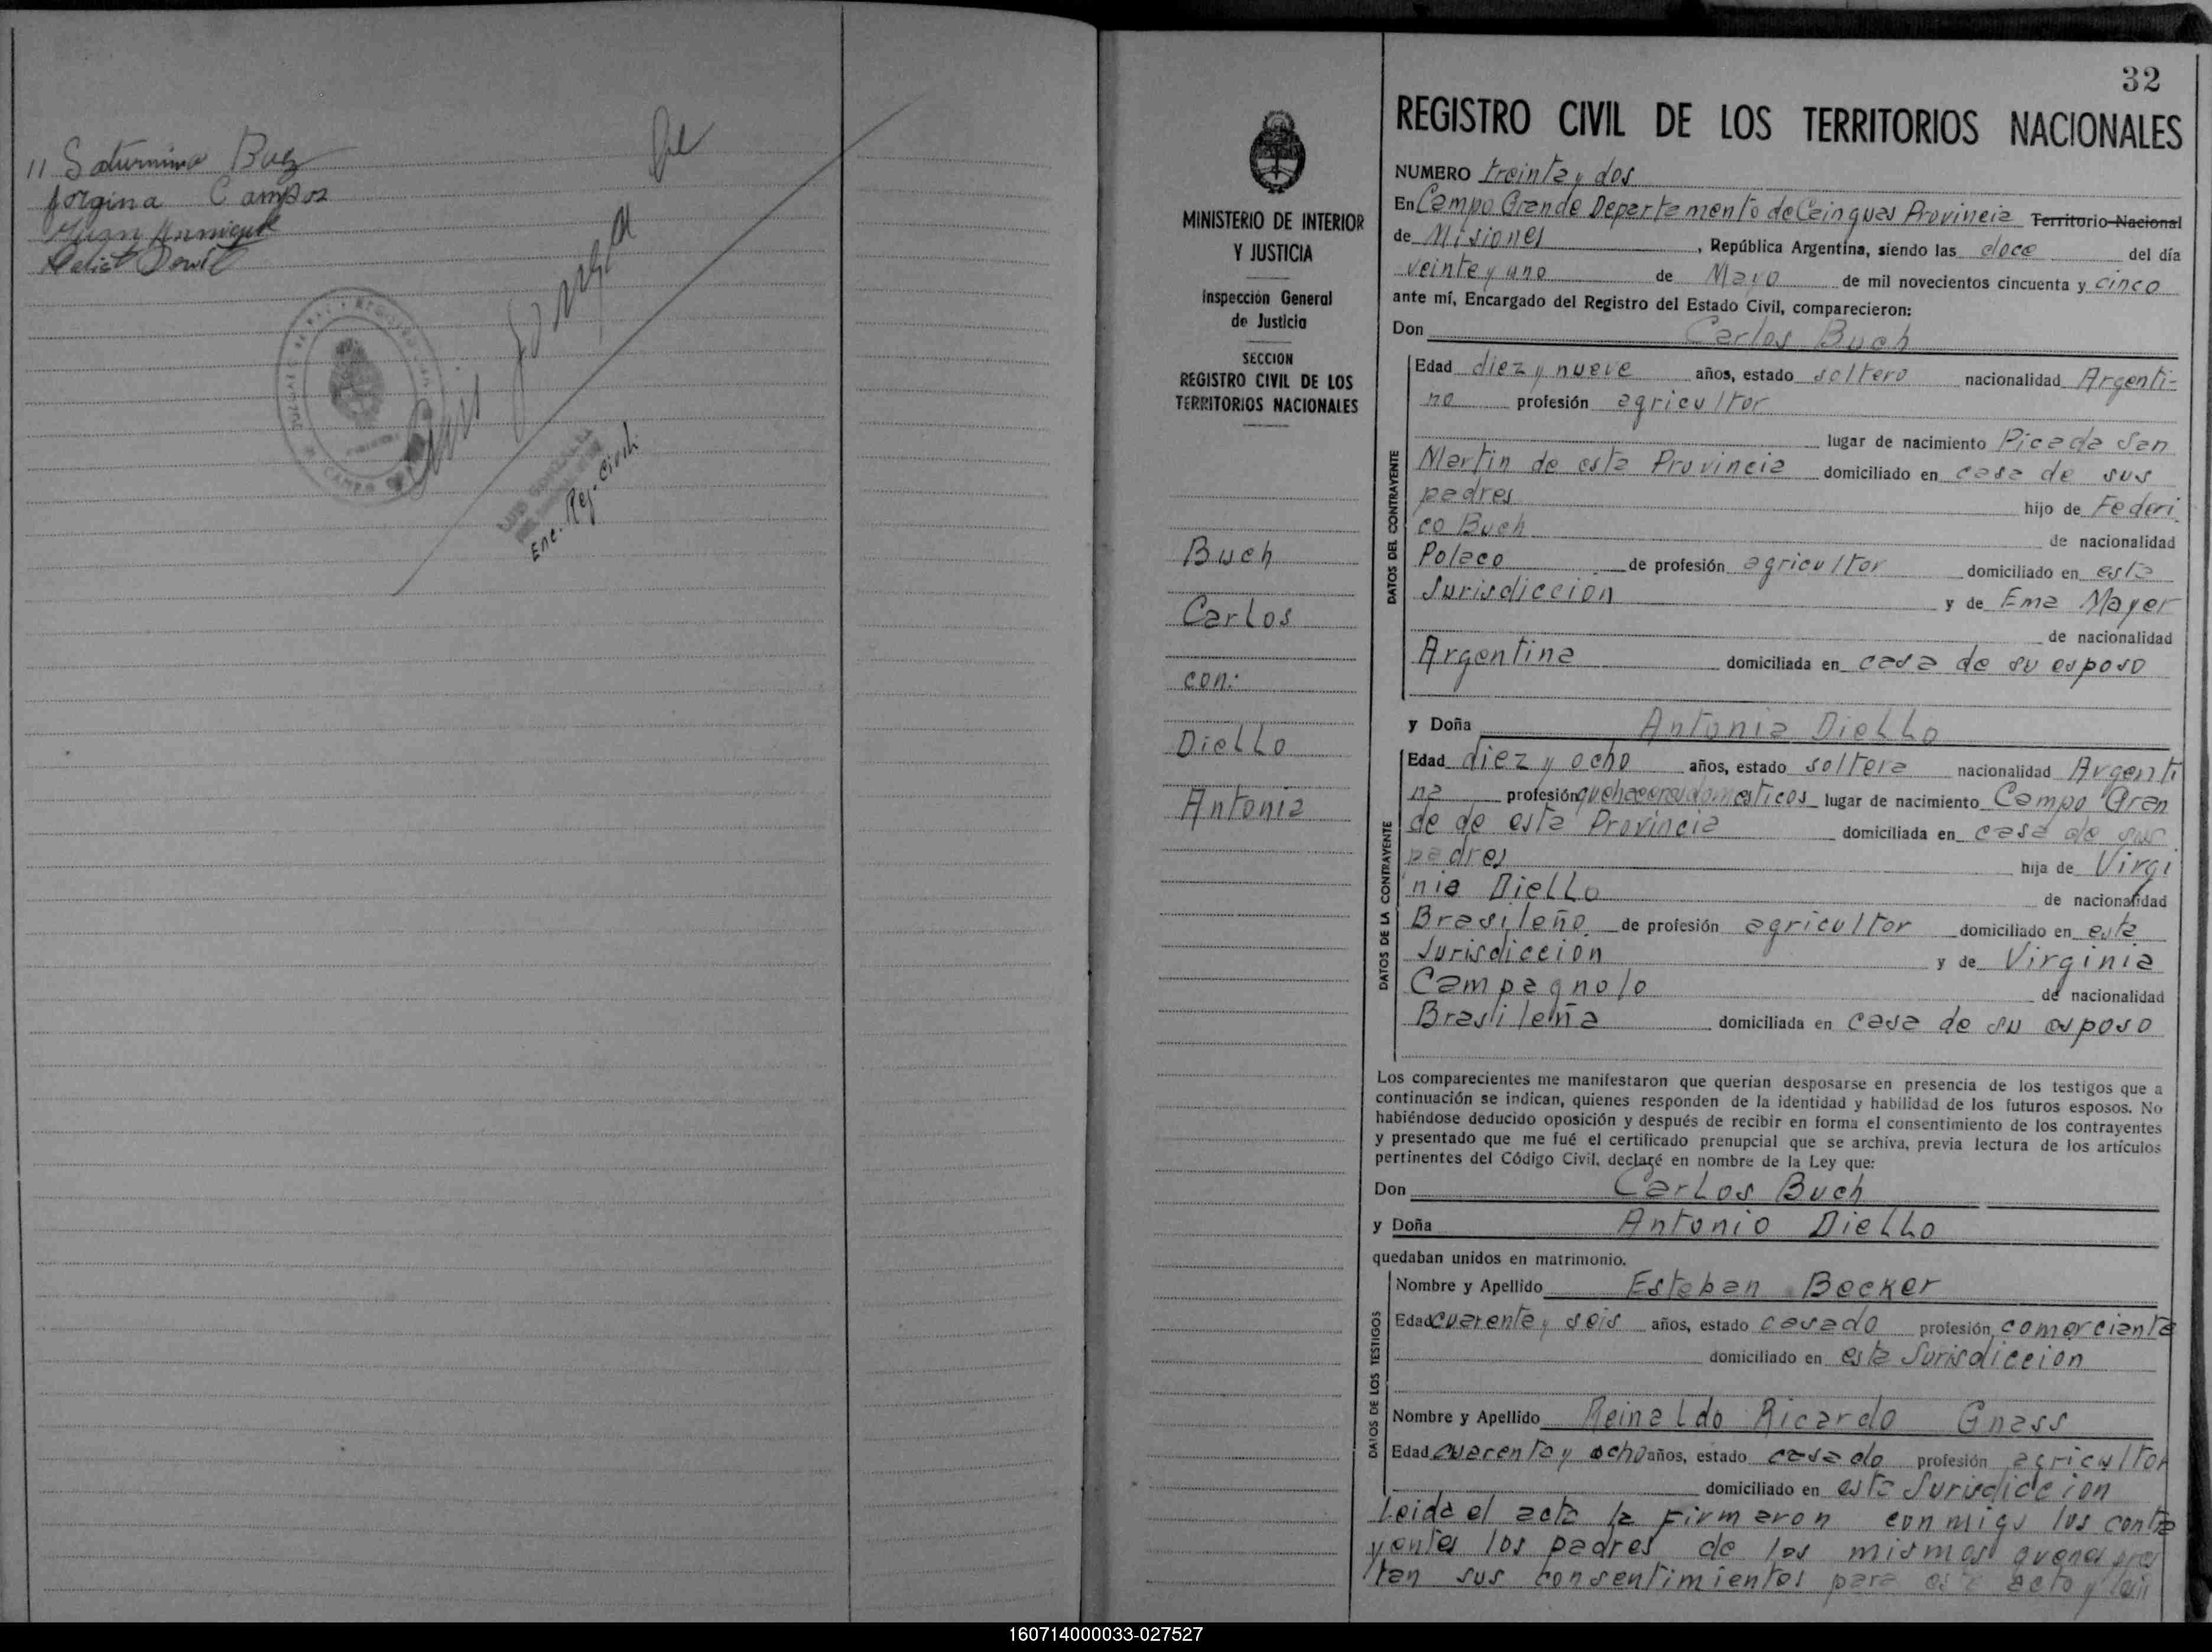 11 Saturnino Baez
Jorgina Campos
Luis
Enc. Reg. Civil.
32
REGISTRO CIVIL DE LOS TERRITORIOS NACIONALES
MINISTERIO DE INTERIOR
Y JUSTICIA
Inspección General
de Justicia
SECCION
REGISTRO CIVIL DE LOS
TERRITORIOS NACIONALES
Buch
Carlos
con:
DieLLo
Antonia
NUMERO treinta y dos
En Campo Grande Departamento de Cainguas Provincia Territorio Nacional
de Misiones, República Argentina, siendo las doce del día
veinte y uno de Mayo de mil novecientos cincuenta y cinco
ante mí, Encargado del Registro del Estado Civil, comparecieron:
Don Carlos Buch
DATOS DEL CONTRAYENTE
Edad diez y nueve años, estado soltero nacionalidad Argenti-
no profesión agricultor
lugar de nacimiento Picada San
Martin de esta Provincia domiciliado en casa de sus
padres hijo de Federi
co Buch de nacionalidad
Polaco de profesión agricultor domiciliado en esta
Jurisdiccion y de Ema Mayer
de nacionalidad
Argentina domiciliada en casa de su esposo
y Doña Antonia DieLLo
DATOS DE LA CONTRAYENTE
Edad diez y ocho años, estado soltera nacionalidad Argenti
na profesión quehaceres domesticos lugar de nacimiento Campo Gran
de de esta Provincia domiciliada en casa de sus
padres hija de Virgi
nio DieLLo de nacionalidad
Brasileño de profesión agricultor domiciliado en esta
Jurisdiccion y de Virginia
Campagnolo de nacionalidad
Brasileña domiciliada en casa de su esposo
Los comparecientes me manifestaron que querían desposarse en presencia de los testigos que a
continuación se indican, quienes responden de la identidad y habilidad de los futuros esposos. No
habiéndose deducido oposición y después de recibir en forma el consentimiento de los contrayentes
y presentado que me fué el certificado prenupcial que se archiva, previa lectura de los artículos
pertinentes del Código Civil, declaré en nombre de la Ley que:
Don CarLos Buch
y Doña Antonio DieLLo
quedaban unidos en matrimonio.
DATOS DE LOS TESTIGOS
Nombre y Apellido Esteban Becker
Edad cuarenta y seis años, estado casado profesión comerciante
domiciliado en esta Jurisdiccion
Nombre y Apellido ReinaLdo Ricardo Gnass
Edad cuarenta y ocho años, estado casado profesión agricultor
domiciliado en esta Jurisdiccion
Leida el acta la Firmaron conmigo los contra
yentes los padres de los mismos
tan sus consentimientos para este acto y
160714000033-027527